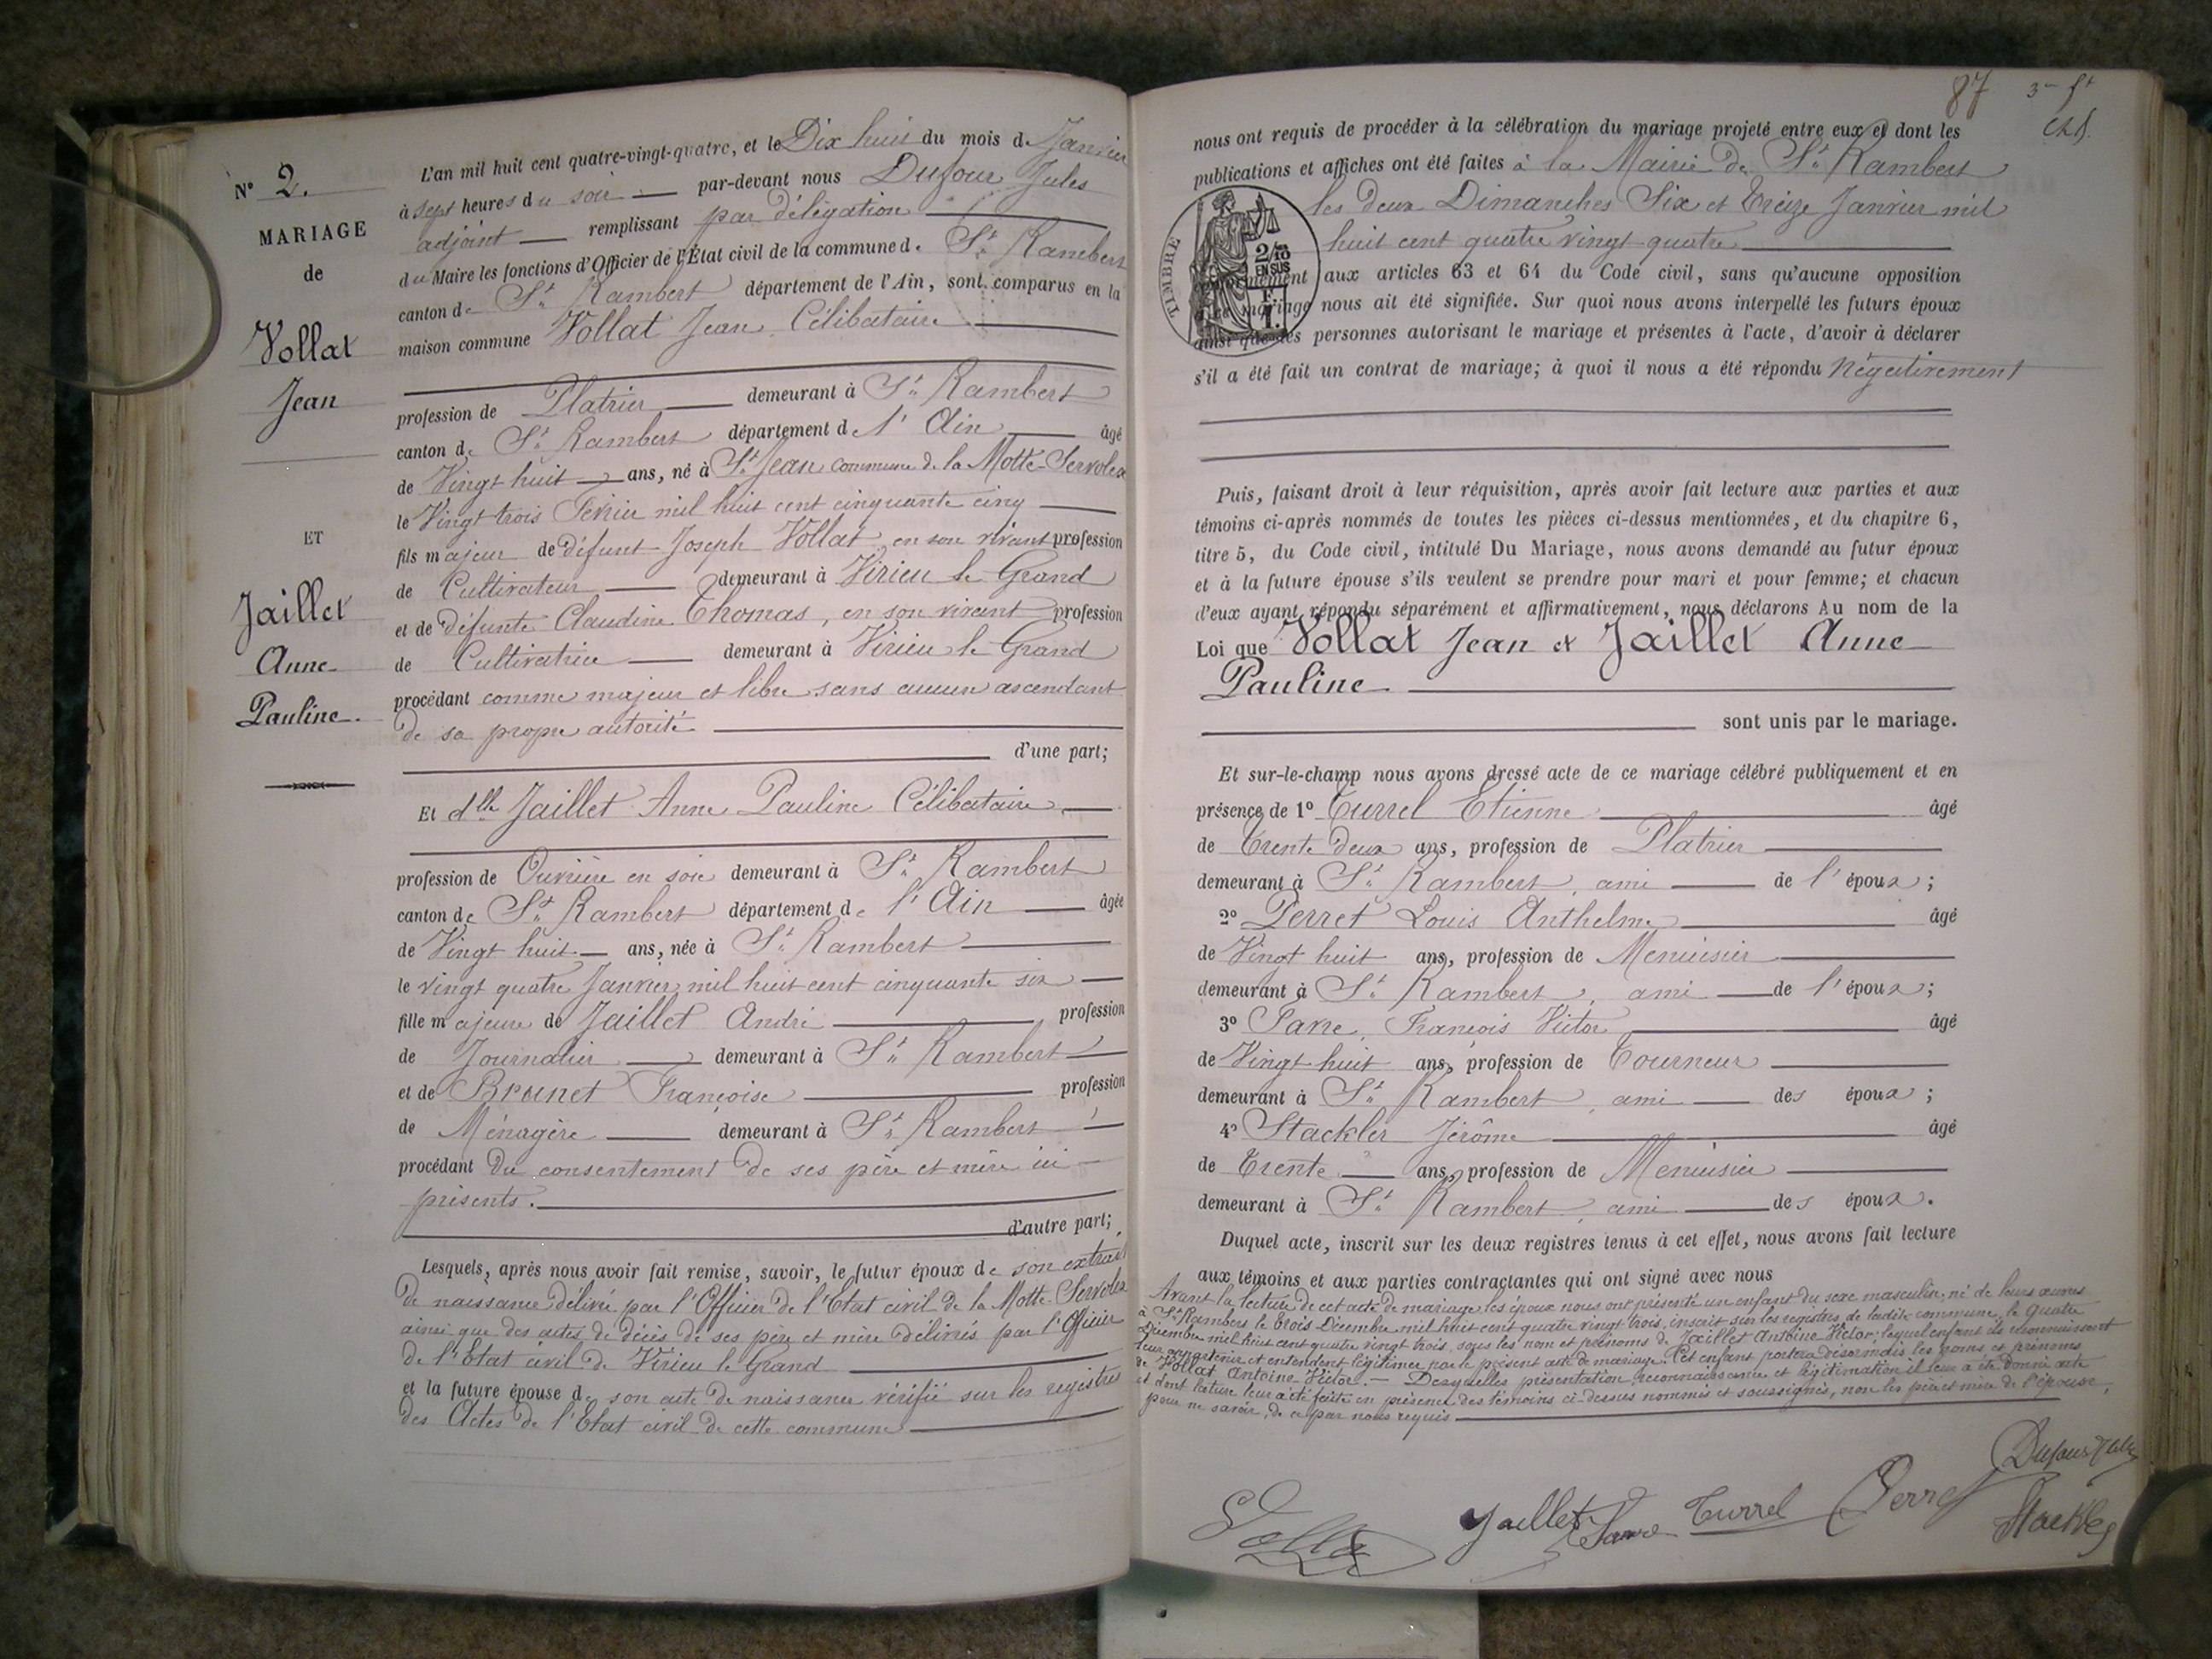 N° 2.
MARIAGE
de
Vollat
Jean
ET
Jaillet
Anne
Pauline.
L'an mil huit cent quatre-vingt-quatre, et le Dix huit du mois de Janvier
à sept heures du soir par-devant nous Dufour Jules
adjoint remplissant par délégation
du Maire les fonctions d'Officier de l'État civil de la commune de St Rambert
canton de St Rambert département de l'Ain, sont comparus en la
maison commune Vollat Jean Célibataire
profession de Platrier demeurant à St Rambert
canton de St Rambert département de l'Ain âgé
de Vingt huit ans, né à St Jean commune de la Motte-Servolex
le Vingt trois Février mil huit cent cinquante cinq
fils majeur de défunt Joseph Vollat en son vivant profession
de Cultivateur demeurant à Virieu le Grand
et de défunte Claudine Thomas, en son vivant profession
de Cultivatrice demeurant à Virieu le Grand
procédant comme majeur et libre sans aucun ascendant
de sa propre autorité
d'une part;
Et dlle Jaillet Anne Pauline Célibataire
profession de Ouvrière en soie demeurant à St Rambert
canton de St Rambert département de l'Ain âgée
de Vingt huit ans, née à St Rambert
le vingt quatre Janvier mil huit cent cinquante six
fille majeure de Jaillet André profession
de Journalier demeurant à St Rambert
et de Brunet Françoise profession
de Ménagère demeurant à St Rambert
procédant du consentement de ses père et mère ici
présents.
d'autre part;
Lesquels, après nous avoir fait remise, savoir, le futur époux de son extrait
de naissance délivré par l'Officier de l'Etat civil de la Motte-Servolex
ainsi que des actes de décès de ses père et mère délivrés par l'Officier
de l'Etat civil de Virieu le Grand
et la future épouse de son acte de naissance vérifié sur les registres
des Actes de l'Etat civil de cette commune
87
nous ont requis de procéder à la célébration du mariage projeté entre eux et dont les
publications et affiches ont été faites à la Mairie de St Rambert
les deux Dimanches Six et Treize Janvier mil
huit cent quatre vingt quatre
TIMBRE
2/10
EN SUS
F.
1.
conformément aux articles 63 et 64 du Code civil, sans qu'aucune opposition
à ce mariage nous ait été signifiée. Sur quoi nous avons interpellé les futurs époux
ainsi que les personnes autorisant le mariage et présentes à l'acte, d'avoir à déclarer
s'il a été fait un contrat de mariage; à quoi il nous a été répondu Négativement
Puis, faisant droit à leur réquisition, après avoir fait lecture aux parties et aux
témoins ci-après nommés de toutes les pièces ci-dessus mentionnées, et du chapitre 6,
titre 5, du Code civil, intitulé Du Mariage, nous avons demandé au futur époux
et à la future épouse s'ils veulent se prendre pour mari et pour femme; et chacun
d'eux ayant répondu séparément et affirmativement, nous déclarons Au nom de la
Loi que Vollat Jean et Jaillet Anne
Pauline
sont unis par le mariage.
Et sur-le-champ nous avons dressé acte de ce mariage célébré publiquement et en
présence de 1° Turrel Etienne âgé
de Trente deux ans, profession de Platrier
demeurant à St Rambert, ami de l'époux;
2° Perret Louis Anthelme âgé
de Vingt huit ans, profession de Menuisier
demeurant à St Rambert, ami de l'époux;
3° François Victor âgé
de Vingt huit ans, profession de Tourneur
demeurant à St Rambert, ami des époux;
4° Stackler Jérôme âgé
de Trente ans, profession de Menuisier
demeurant à St Rambert, ami des époux.
Duquel acte, inscrit sur les deux registres tenus à cet effet, nous avons fait lecture
aux témoins et aux parties contractantes qui ont signé avec nous
Avant la lecture de cet acte de mariage les époux nous ont présenté un enfant du sexe masculin, né de leurs œuvres
à St Rambert le trois Décembre mil huit cent quatre vingt trois, inscrit sur les registres de ladite commune, le quatre
Décembre mil huit cent quatre vingt trois, sous les nom et prénoms de Jaillet Antoine Victor; lequel enfant ils reconnaissent
leur appartenir et entendent légitimer par le présent acte de mariage. Cet enfant portera désormais les noms et prénoms
de Vollat Antoine Victor. — Desquelles présentation reconnaissance et légitimation il leur a été donné acte
et dont lecture leur a été faite en présence des témoins ci-dessus nommés et soussignés, non les père et mère de l'épouse,
pour ne savoir, de ce par nous requis
Dufour Jules
Jaillet Turrel Perret
Stackler